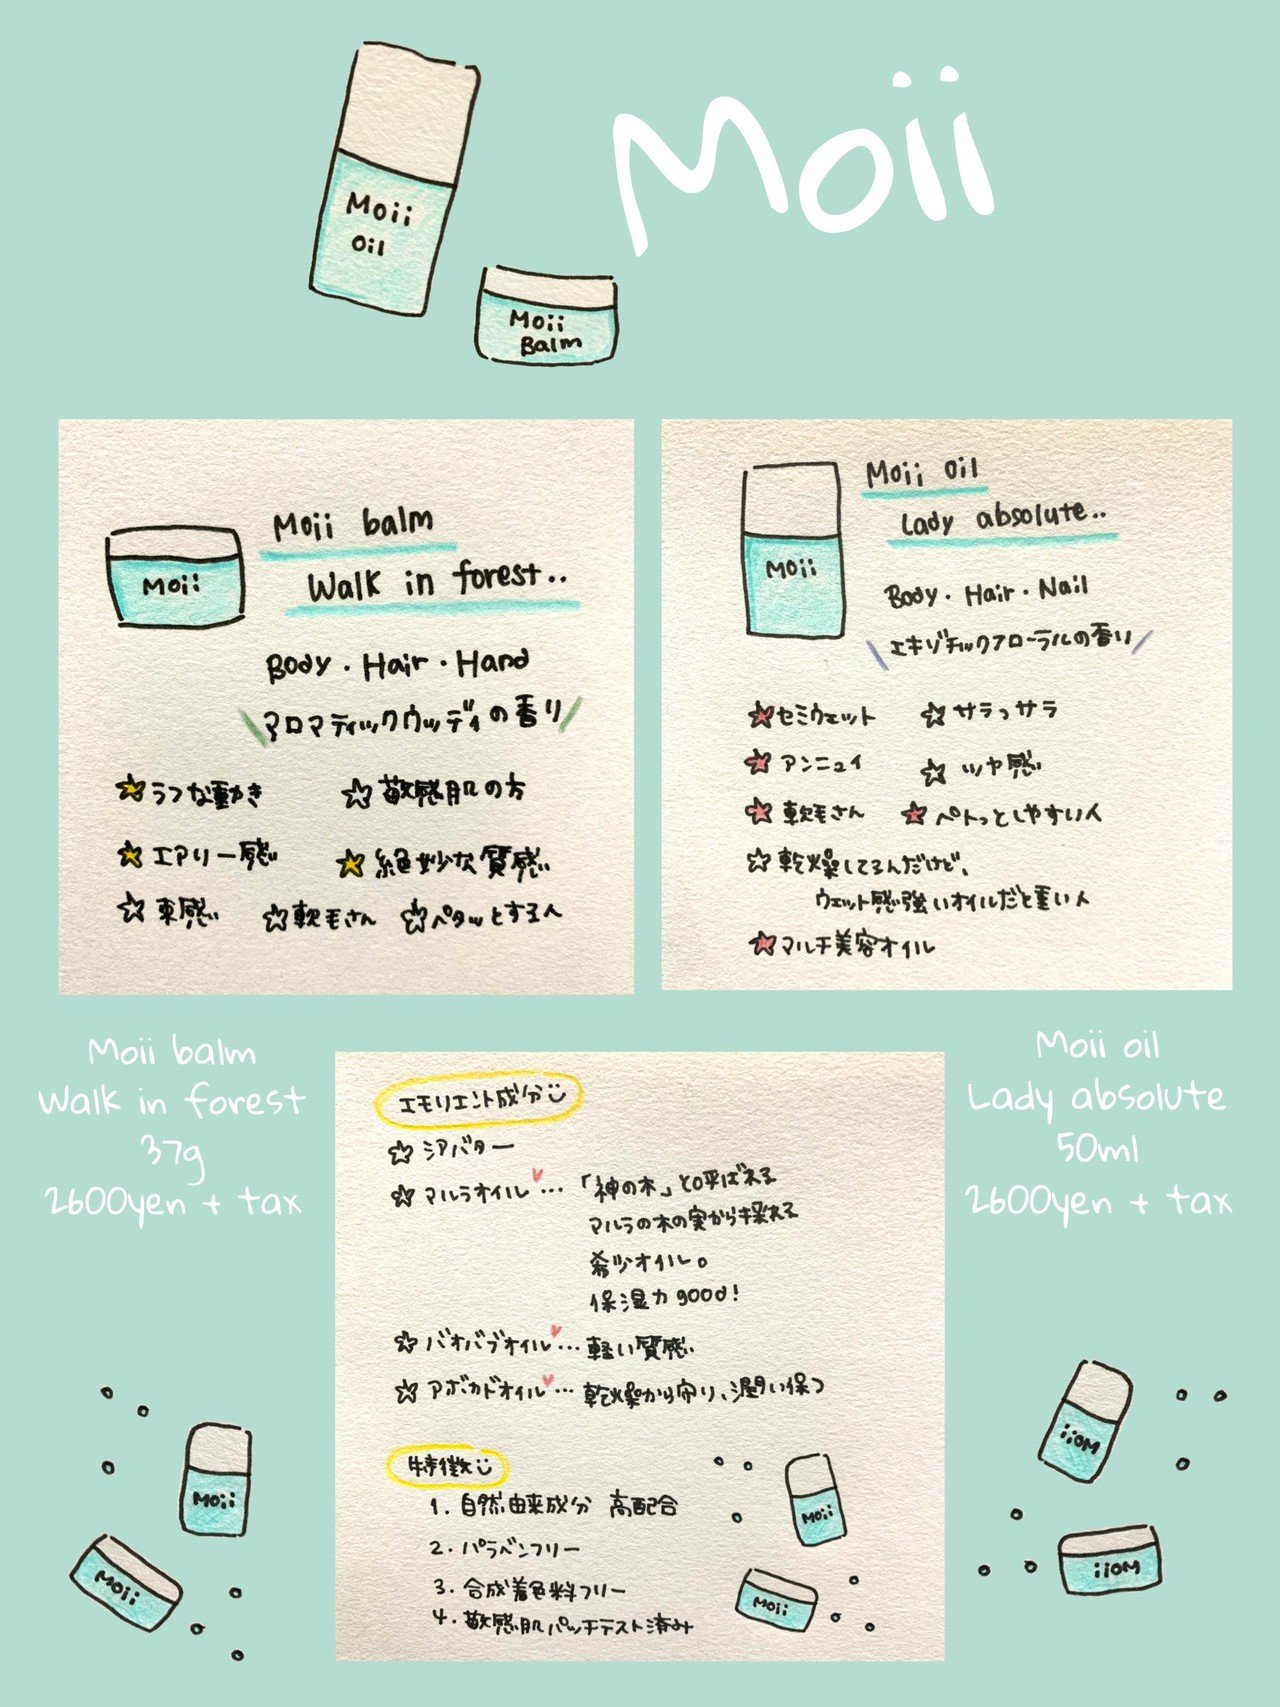 Moii
Moii
Oil
Moii
Balm
Moii balm
Walk in forest..
Moii
Body・Hair・Hand
\アロマティックウッディの香り/
☆ラフな動き
☆敏感肌の方
☆エアリー感
☆絶妙な質感
☆束感
☆軟毛さん
☆ペタッとする人
Moii Oil
Lady absolute..
Moii
Body・Hair・Nail
\エキゾチックフローラルの香り/
☆セミウェット
☆サラっサラ
☆アンニュイ
☆ツヤ感
☆軟毛さん
☆ペトっとしやすい人
☆乾燥してるんだけど、
ウェット感強いオイルだと重い人
☆マルチ美容オイル
Moii balm
Walk in forest
37g
2600yen + tax
エモリエント成分
☆シアバター
☆マルラオイル…「神の木」と呼ばれる
マルラの木の実から採れる
希少オイル。
保湿力good!
☆バオバブオイル…軽い質感
☆アボカドオイル…乾燥から守り、潤い保つ
特徴
1.自然由来成分 高配合
2.パラベンフリー
3.合成着色料フリー
4.敏感肌パッチテスト済み
Moii
Moii
Moii oil
Lady absolute
50ml
2600yen + tax
Moii
Moii
Moii
Moii